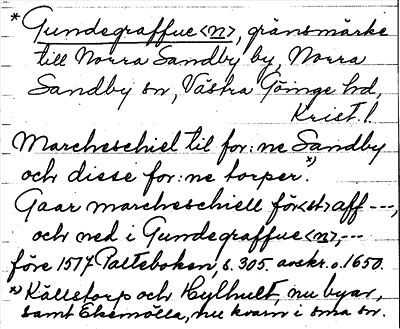 * Gundegraffue <n>, gränsmärke
till Norra Sandby by, Norra
Sandby sn, Västra Göinge hd,
Krist. l.
Marcheschiel til for:ne Sandby
och disse for:ne torper. *)
Gaar marcheschiell för<st> aff ---,
och ned i Gundegraffue <n>, ---
före 1517 Paltsboken, s. 305. avskr. o. 1650.
*) Källstorp och Hylhult, nu byar,
samt Ekemölla, nu kvarn i sma sn.